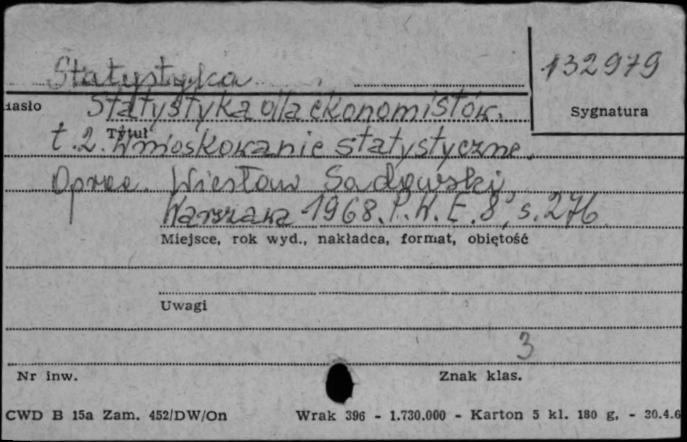 Statystyka
132979
Hasło
Statystyka dla ekonomistów.
Sygnatura
Tytuł
t. 2. Wnioskowanie statystyczne.
Oprac. Wiesław Sadowski
Warszawa 1968. P.W.E. 8°, s. 276
Miejsce, rok wyd., nakładca, format, objętość
Uwagi
3
Nr inw.
Znak klas.
CWD B 15a Zam. 452/DW/On Wrak 396 - 1.730.000 - Karton 5 kl. 180 g, - 30.4.6